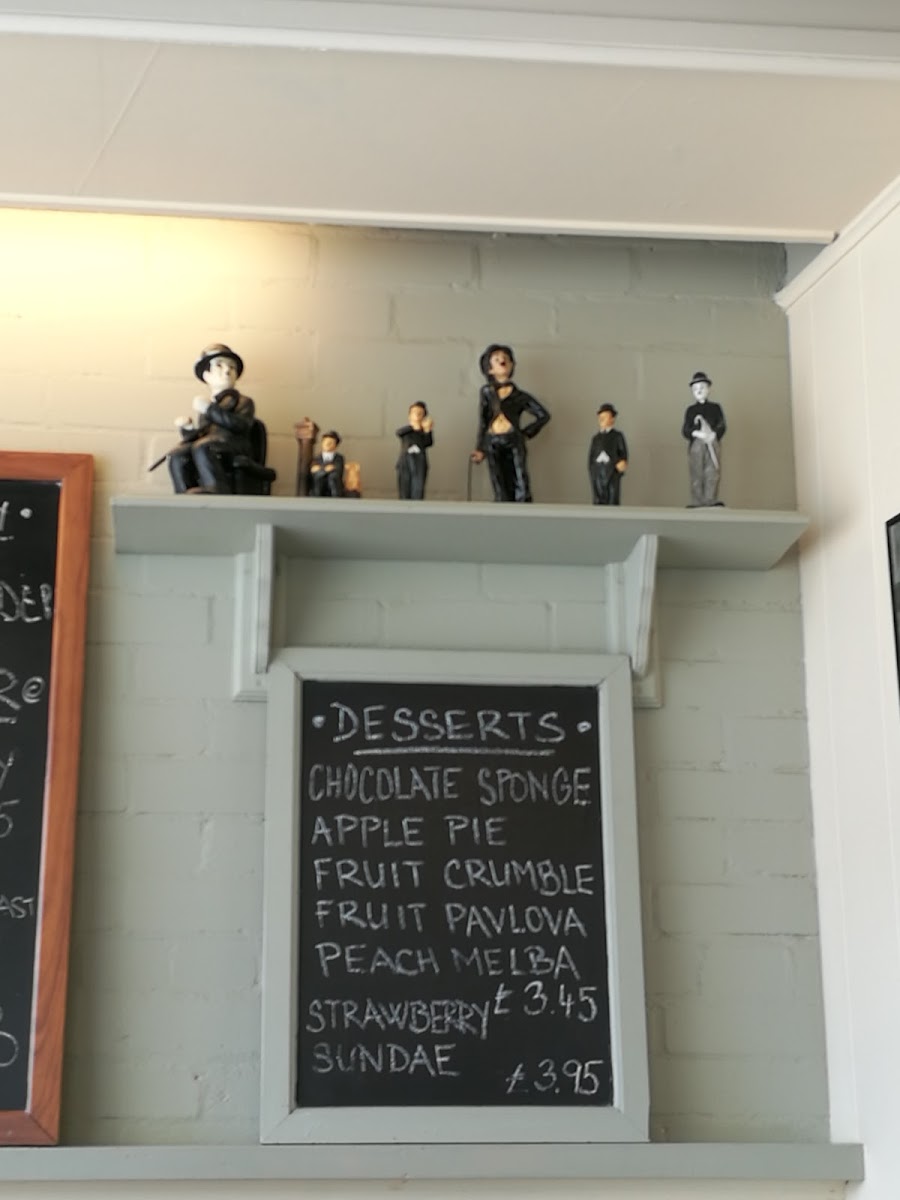 • DESSERTS •
CHOCOLATE SPONGE
APPLE PIE
FRUIT CRUMBLE
FRUIT PAVLOVA
PEACH MELBA
£ 3.45
STRAWBERRY
SUNDAE
£ 3.95